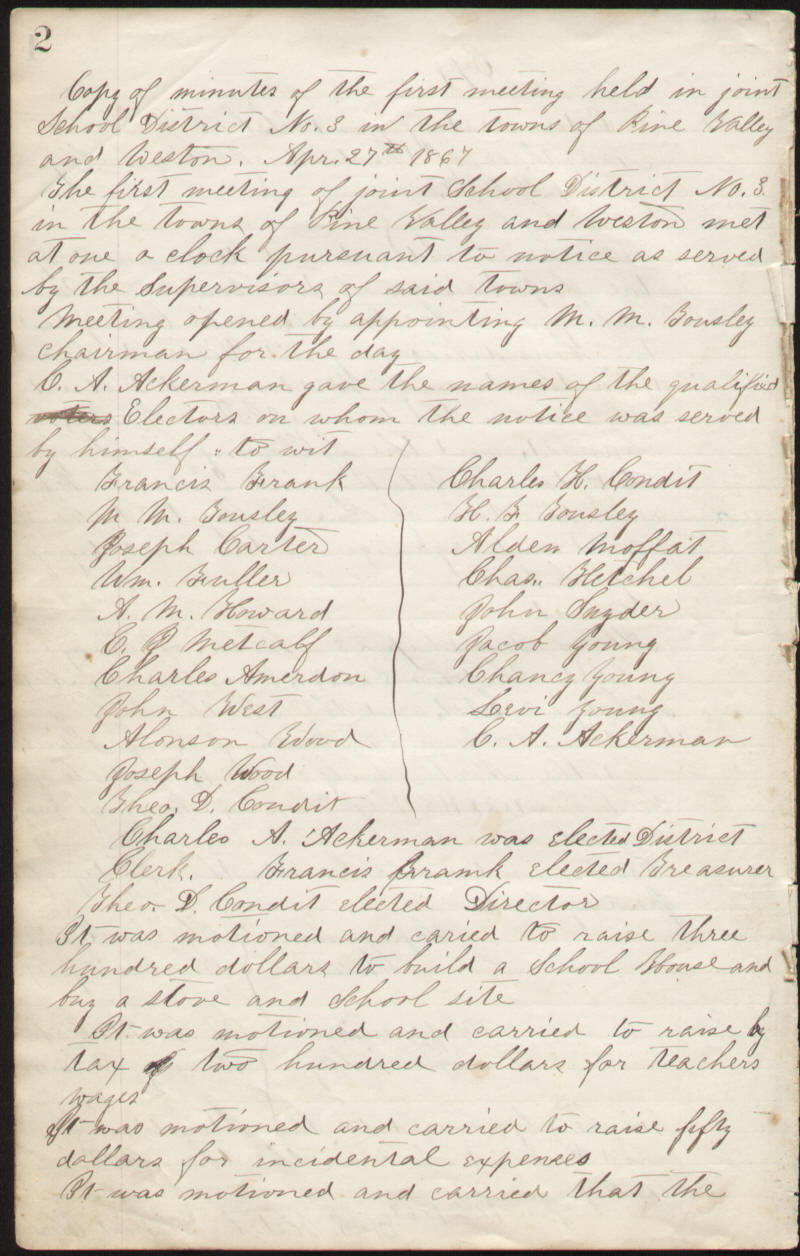 2
Copy of minutes of the first meeting held in joint
School District No. 3 in the towns of Pine Valley
and Weston. Apr. 27th 1867
The first meeting of joint School District No. 3
in the towns of Pine Valley and Weston met
at one o clock pursuant to notice as served
by the Supervisors of said towns
Meeting opened by appointing M. M. Tousley
chairman for the day
C. A. Ackerman gave the names of the qualified
voters Electors on whom the notice was served
by himself. to wit
Francis Frank
M M. Tousley
Joseph Carter
Wm. Fuller
A. M. Howard
C. P Metcalf
Charles Amerdon
John West
Alonson Wood
Joseph Wood
Theo. D. Condit
Charles H. Condit
H. F Tousley
Alden Moffat
Chas. Hetchel
John Snyder
Jacob Young
Chancy Young
Levi Young
C. A. Ackerman
Charles A. Ackerman was elected District
Clerk. Francis Framk elected Treasurer
Theo. D. Condit elected Director
It was motioned and caried to raise three
hundred dollars to build a School House and
buy a stove and school site
It was motioned and carried to raise by
tax two hundred dollars for teachers
wages
It was motioned and carried to raise fifty
dollars for incidental expenses
It was motioned and carried that the